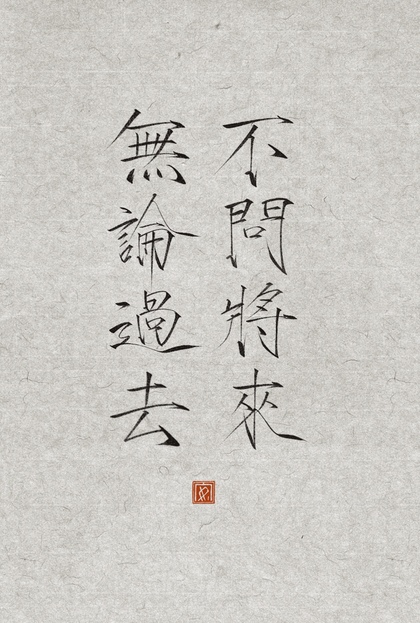 不問將來
無論過去